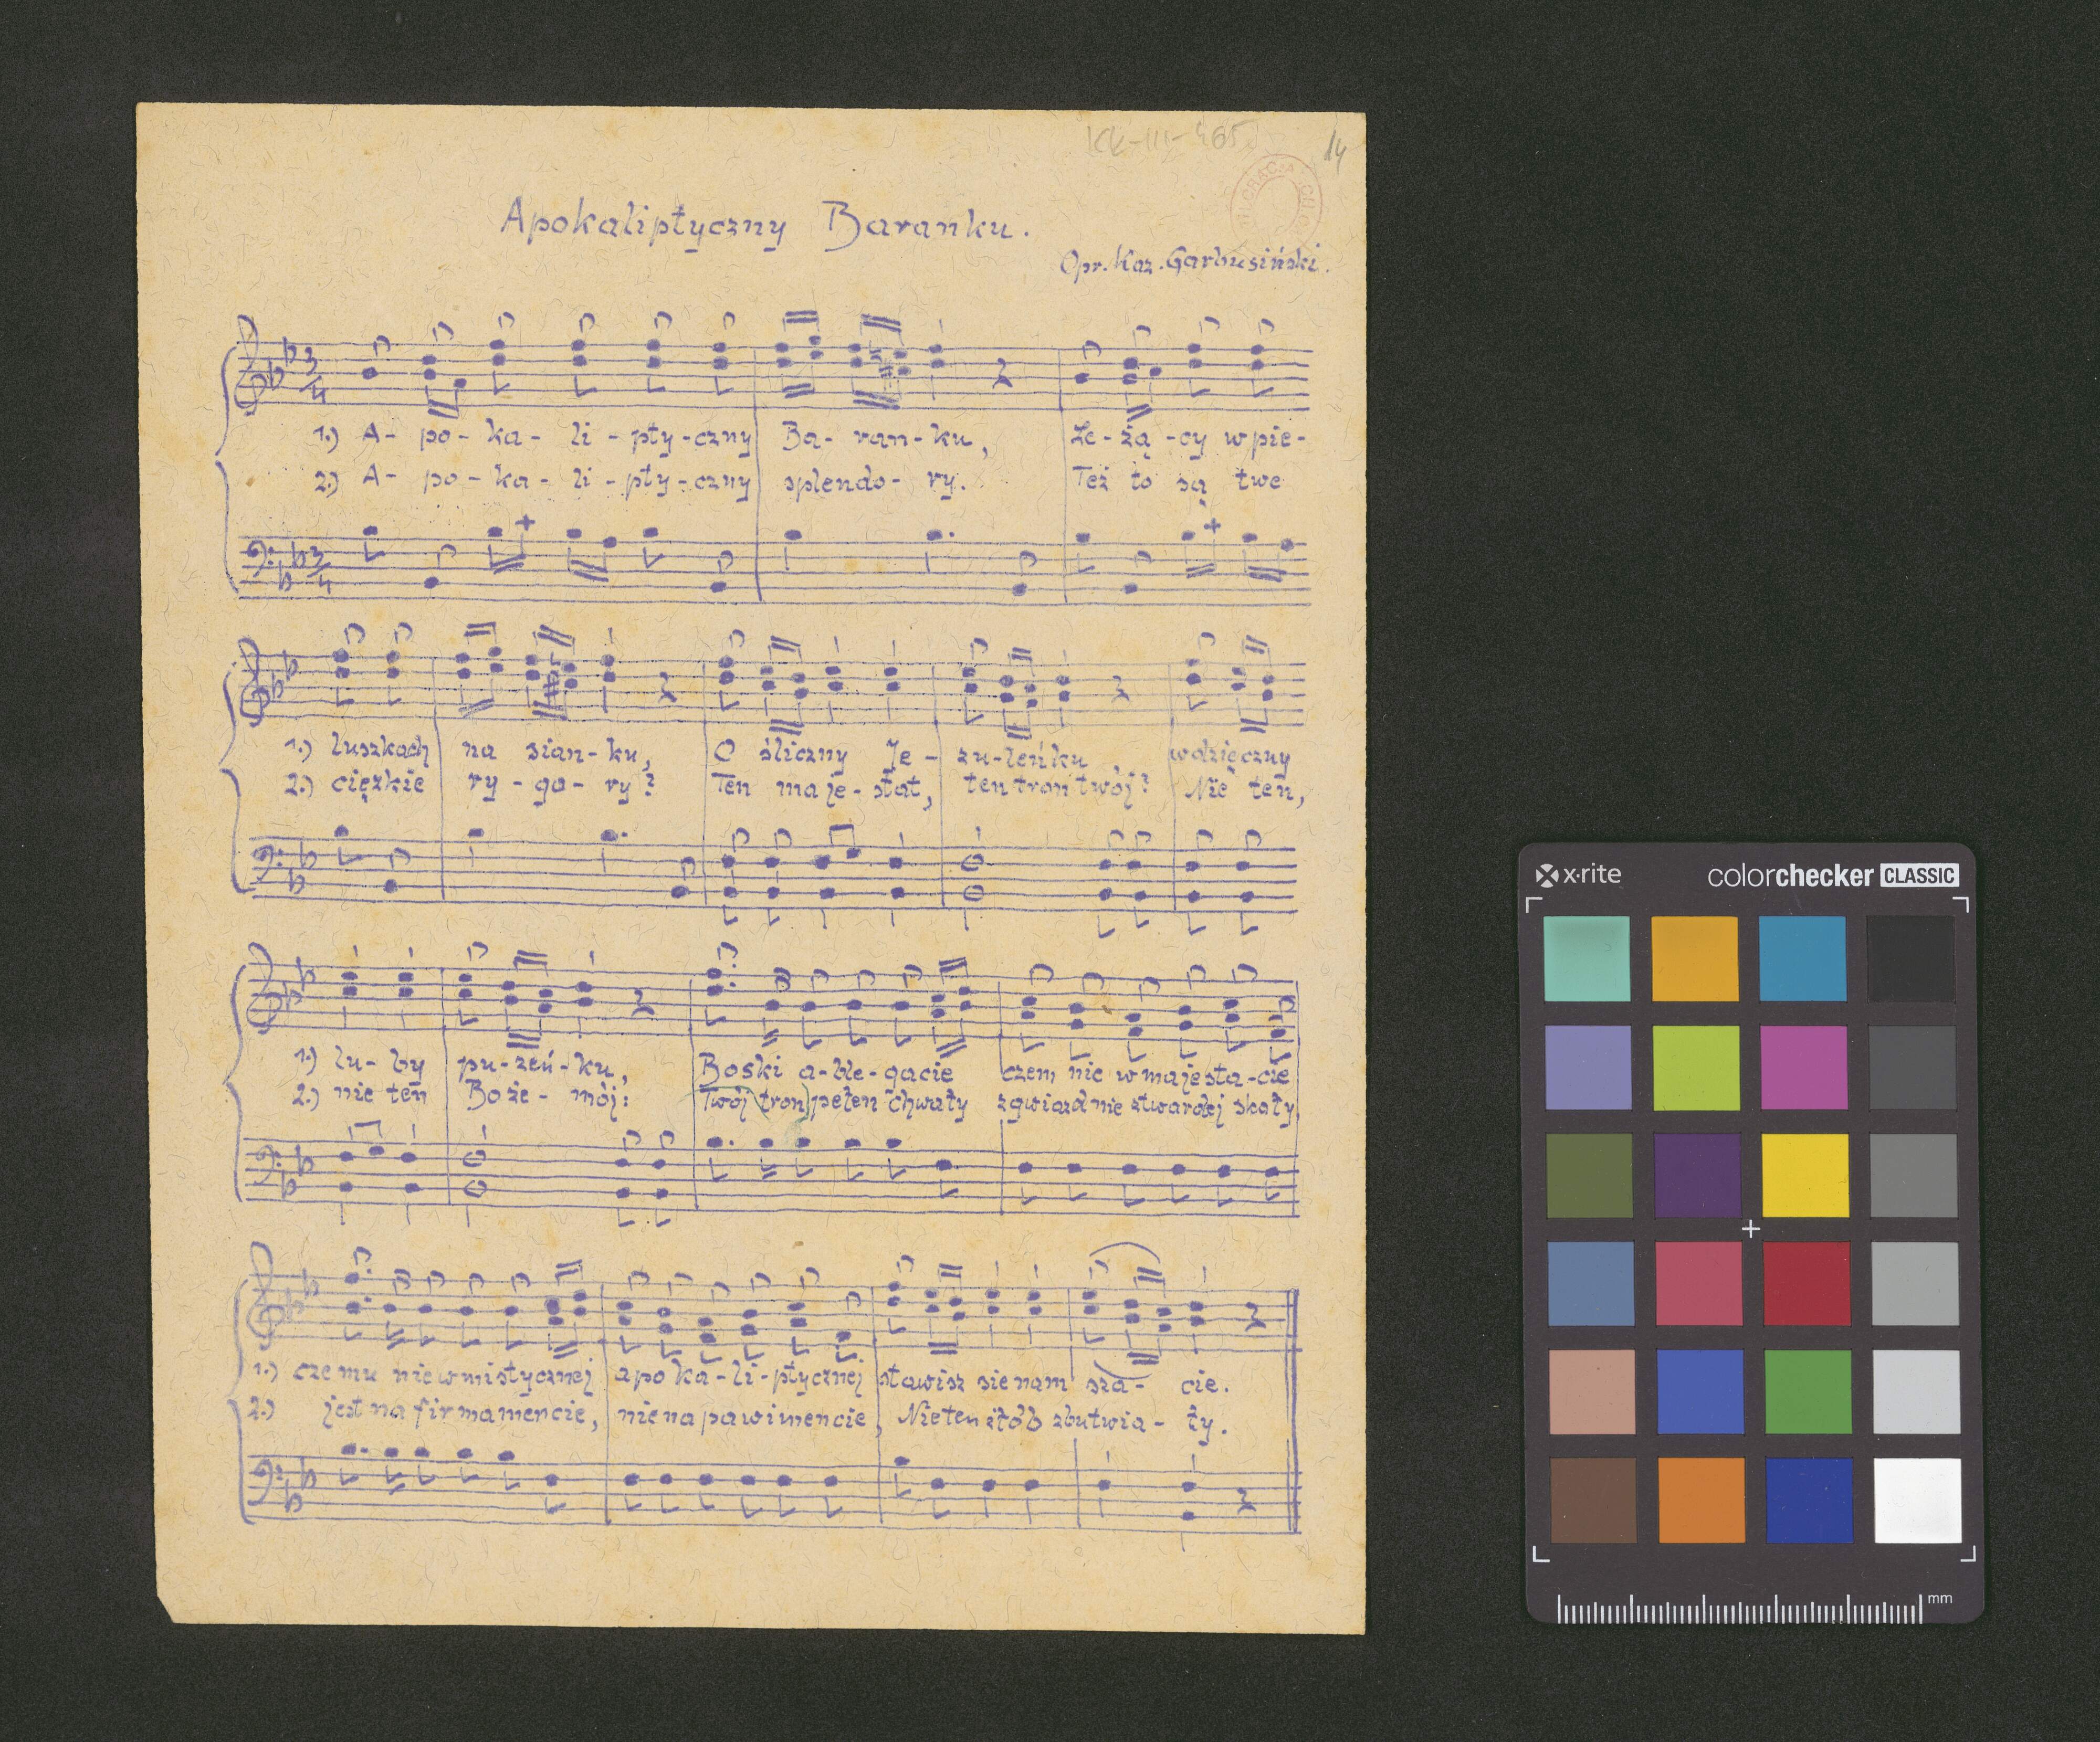 KK-III-465
14
Apokaliptyczny Baranku.
Opr. Kaz. Garbusiński.
3/4
1.) A- po- ka- li- pty-czny Ba- ran-ku, Le-żą-cy w pie-
2.) A- po-ka- li-pty-czny splendo- ry. Też to są twe
3/4
1.) luszkach na sian-ku, O śliczny Je- zu-leńku wdzięczny
2.) ciężkie ry-go-ry? Ten maje-stat, ten tron twój? Nie ten,
1.) lu-by pu-zeń-ku, Boski a-ble-gacie czem nie w majesta-cie
2.) nie ten Boże- mój: Twój (tron) pełen chwały z gwiazd nie z twardej skały,
1.) czemu nie w mistycznej apo ka-li-ptycznej stawisz sie nam sza- cie.
2.) jest na firmamencie, nie na pawimencie, Nie ten żłób zbutwia- ły.
x·rite colorchecker CLASSIC
mm